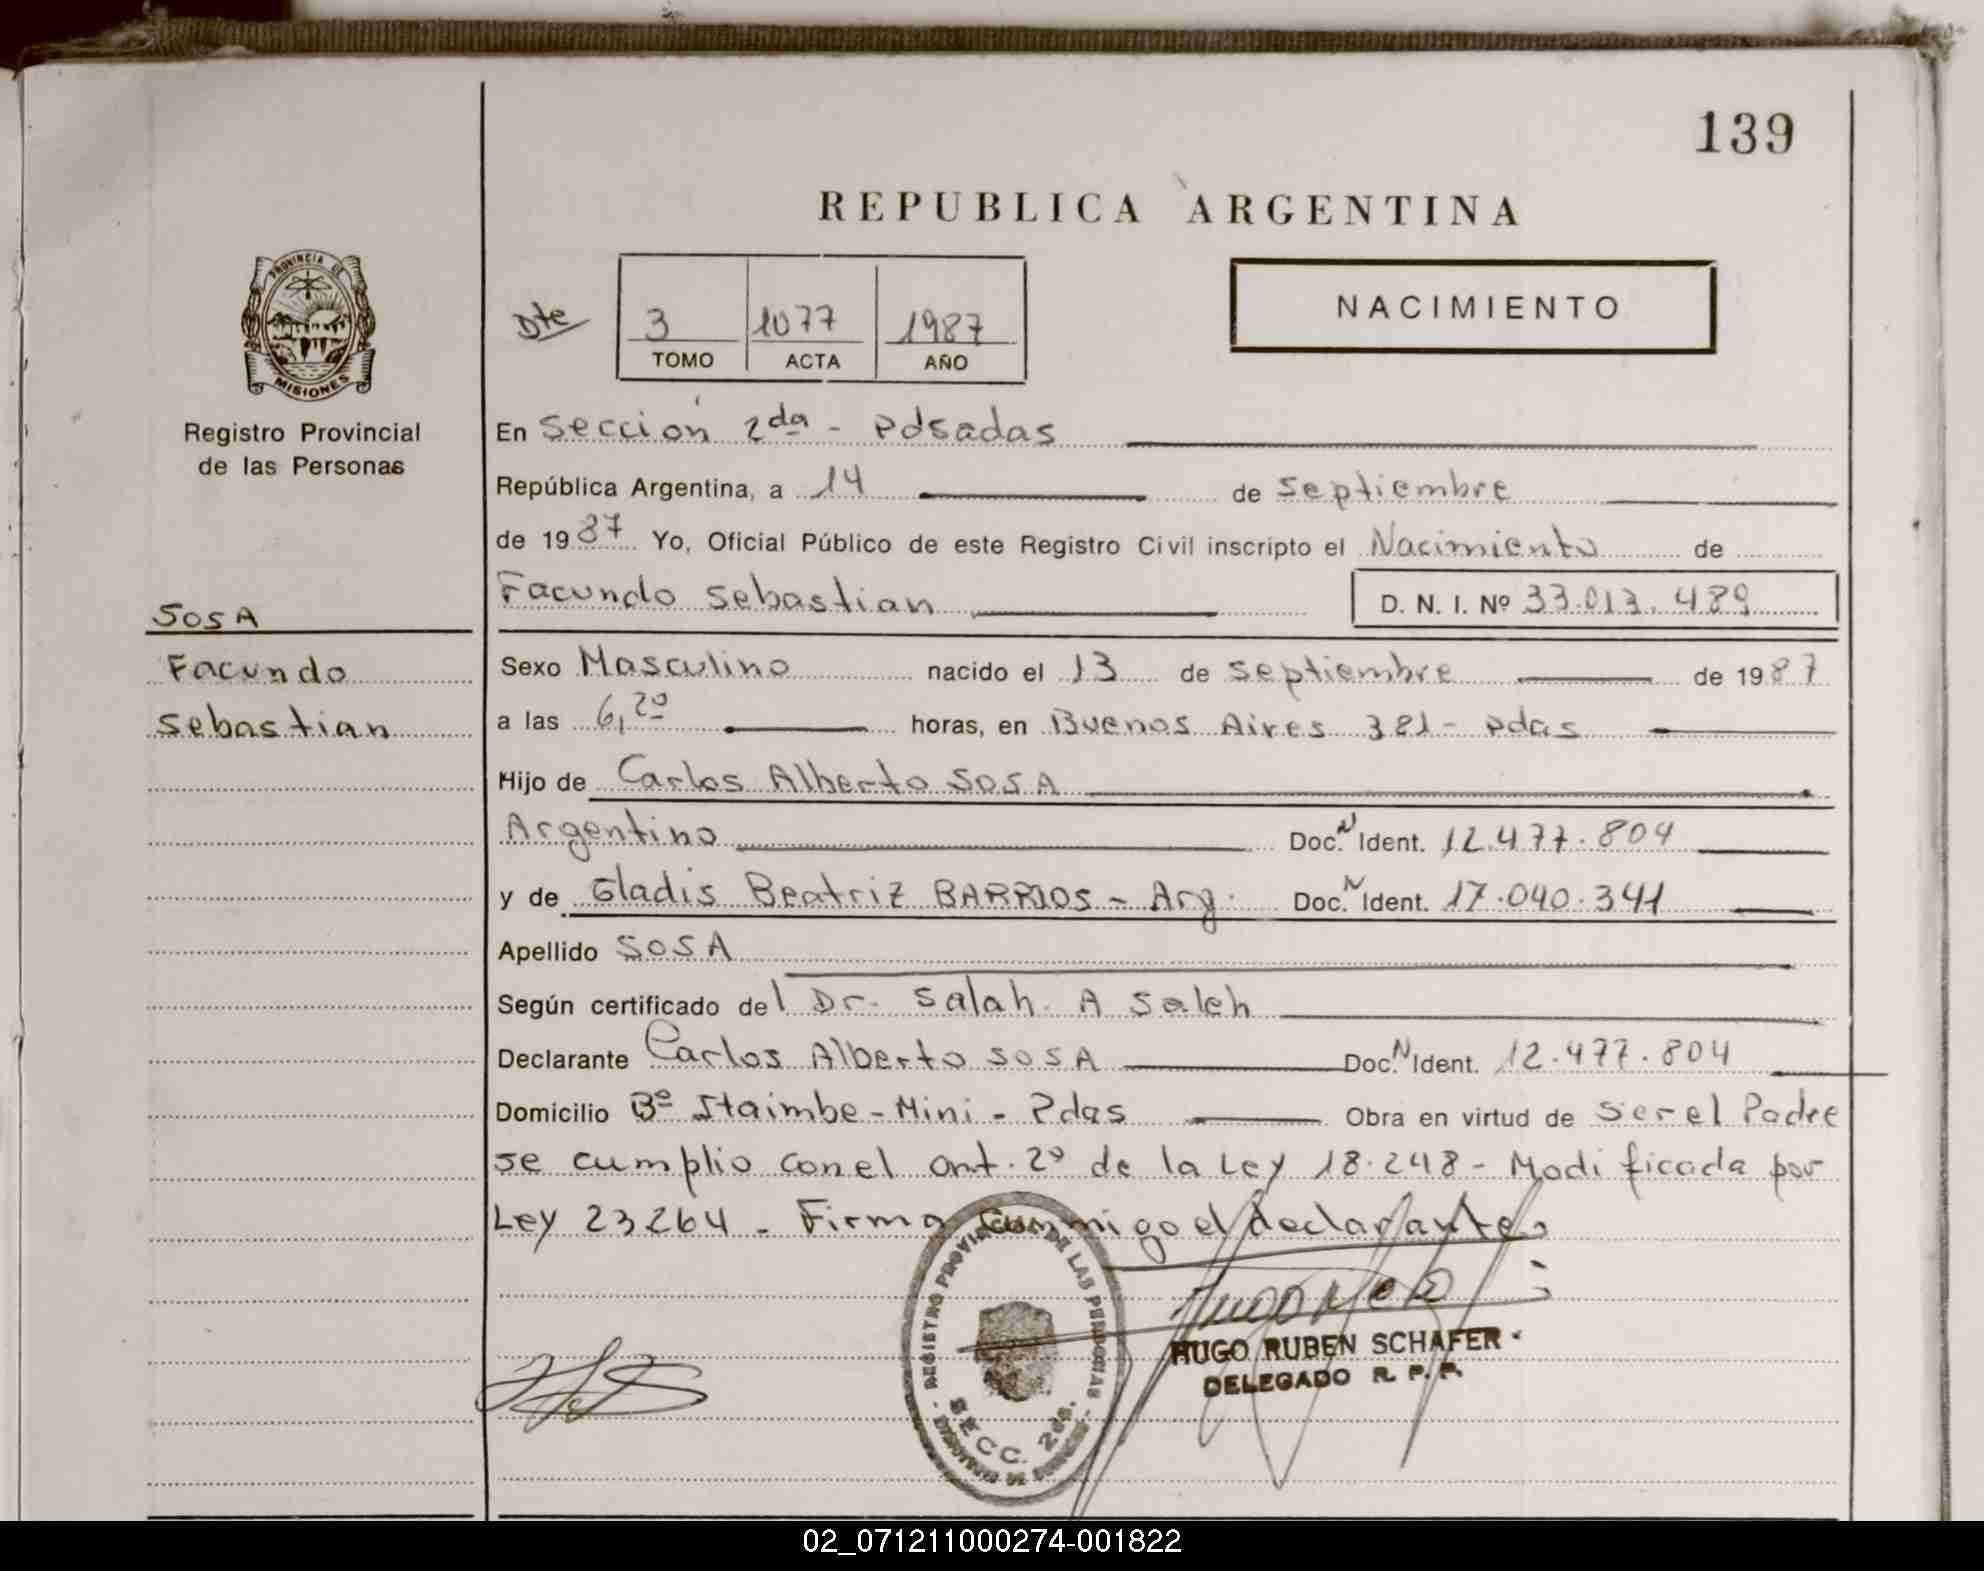 139
REPUBLICA ARGENTINA
PROVINCIA DE
MISIONES
Registro Provincial
de las Personas
Dte
3 1077 1987
TOMO ACTA AÑO
NACIMIENTO
En Sección 2da - Posadas
República Argentina, a 14 de Septiembre
de 1987 Yo, Oficial Público de este Registro Civil inscripto el Nacimiento de
Facundo Sebastian D. N. I. Nº 33.013.489
SOSA
Facundo
Sebastian
Sexo Masculino nacido el 13 de Septiembre de 1987
a las 6,20 horas, en Buenos Aires 381 - Pdas
Hijo de Carlos Alberto SOSA
Argentino Doc. N Ident. 12.477.804
y de Gladis Beatriz BARRIOS - Arg. Doc. N Ident. 17.040.341
Apellido SOSA
Según certificado del Dr. Salah A Saleh
Declarante Carlos Alberto SOSA Doc. N Ident. 12.477.804
Domicilio Bº Itaimbe - Mini - Pdas Obra en virtud de ser el Padre
se cumplio con el art. 2º de la Ley 18.248 - Modificada por
Ley 23264 - Firma conmigo el declarante
REGISTRO PROVINCIAL DE LAS PERSONAS
SECC. 2da.
HUGO RUBEN SCHAFER
DELEGADO R. P. P.
02_071211000274-001822